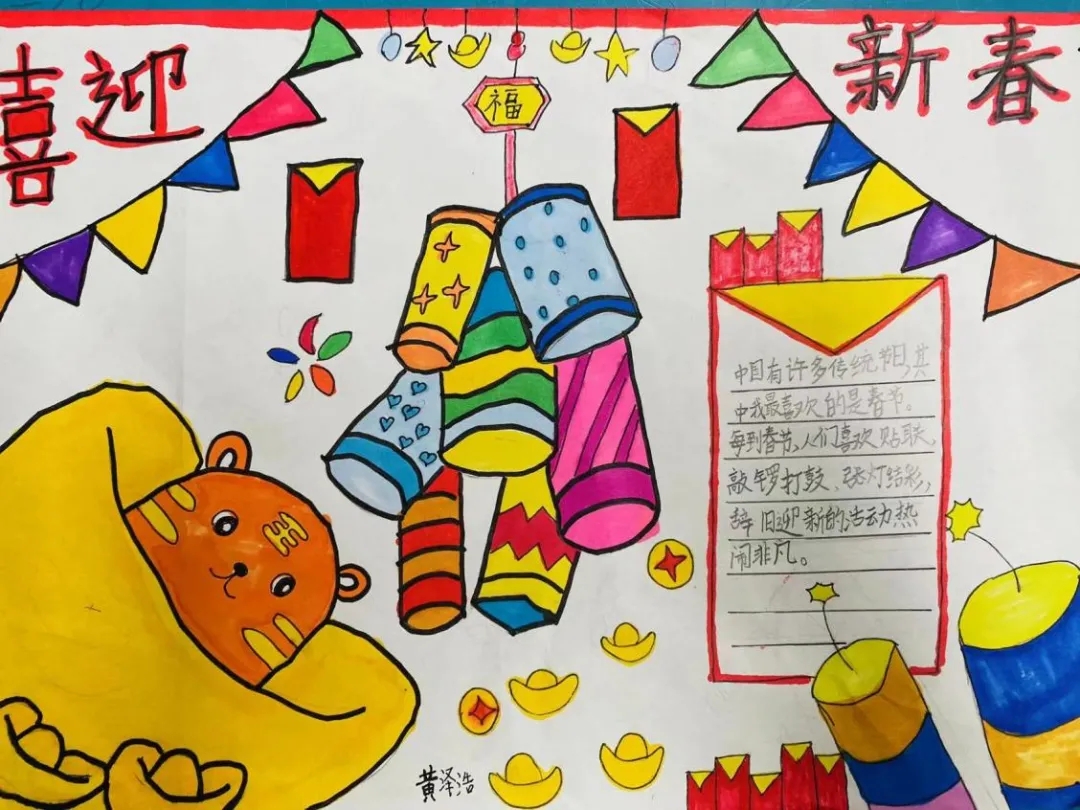 喜迎
新春
福
中国有许多传统节日,其
中我最喜欢的是春节。
每到春节,人们喜欢贴联、
敲锣打鼓、张灯结彩,
辞旧迎新的活动热
闹非凡。
黄泽浩